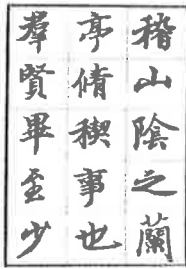 稽山陰之蘭
亭脩稧事也
羣賢畢至少